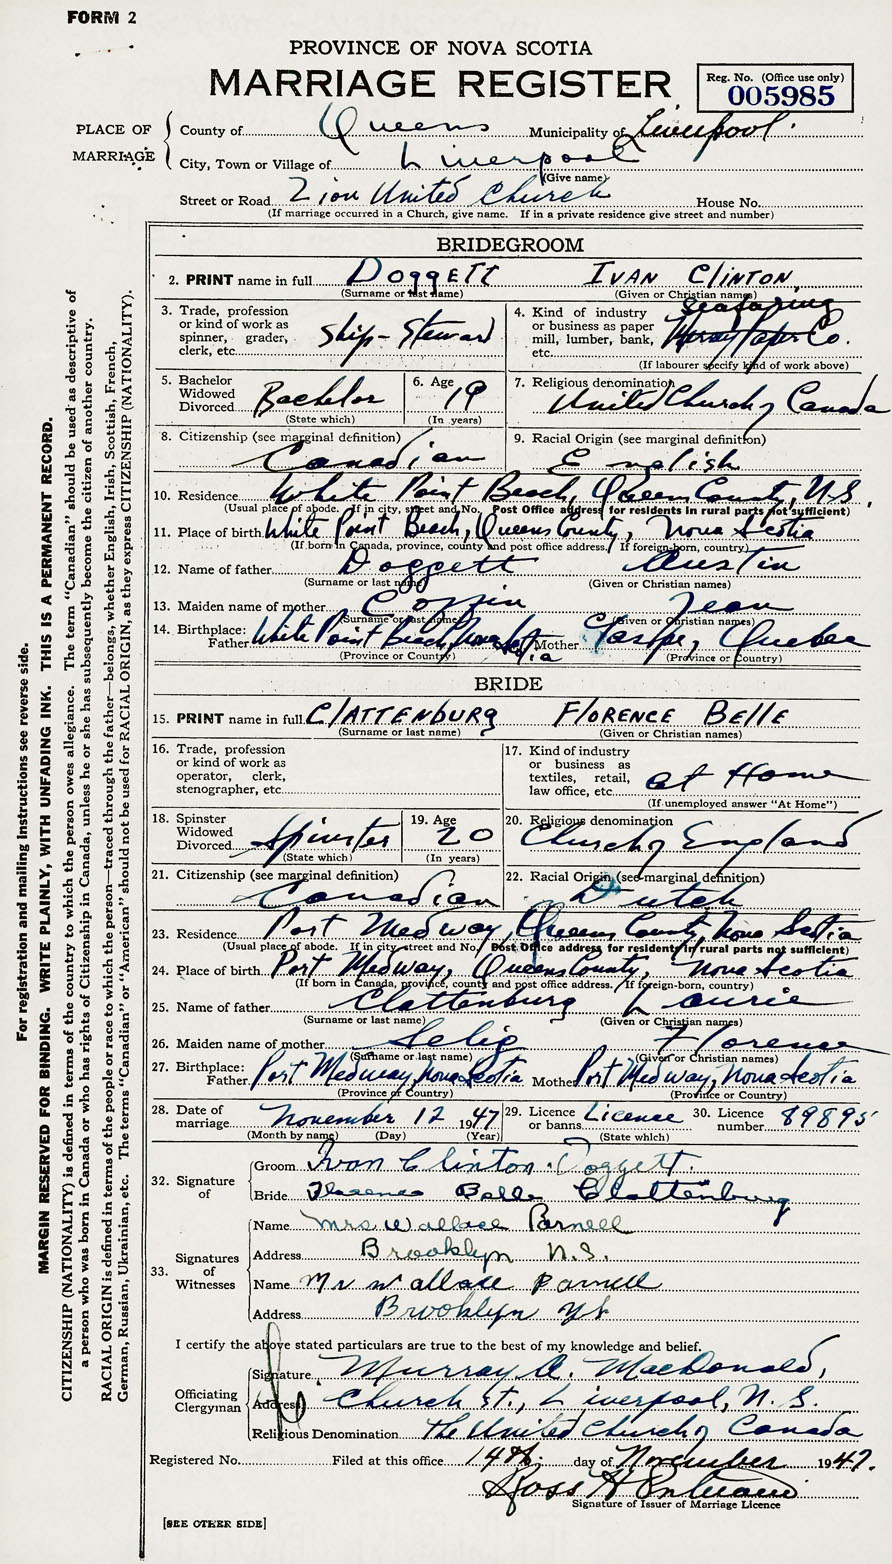 FORM 2
PROVINCE OF NOVA SCOTIA
MARRIAGE REGISTER
Reg. No. (Office use only)
005985
PLACE OF MARRIAGE
County of Queens Municipality of Liverpool.
City, Town or Village of Liverpool
(Give name)
Street or Road Zion United Church House No.
(If marriage occurred in a Church, give name. If in a private residence give street and number)
BRIDEGROOM
2. PRINT name in full Doggett Ivan Clinton
(Surname or last name) (Given or Christian names)
3. Trade, profession or kind of work as spinner, grader, clerk, etc. Ship-Steward
4. Kind of industry or business as paper mill, lumber, bank, etc. Seafaring
(If labourer specify kind of work above)
5. Bachelor Widowed Divorced Bachelor
(State which)
6. Age 19
(In years)
7. Religious denomination United Church of Canada
8. Citizenship (see marginal definition) Canadian
9. Racial Origin (see marginal definition) English
10. Residence White Point Beach, Queens County, N.S.
(Usual place of abode. If in city, street and No. Post Office address for residents in rural parts not sufficient)
11. Place of birth White Point Beach, Queens County, Nova Scotia
(If born in Canada, province, county and post office address. If foreign-born, country)
12. Name of father Doggett Austin
(Surname or last name) (Given or Christian names)
13. Maiden name of mother Coffin Jean
(Surname or last name) (Given or Christian names)
14. Birthplace: Father White Point Beach, Nova Scotia Mother Gaspe, Quebec
(Province or Country) (Province or Country)
BRIDE
15. PRINT name in full Clattenburg Florence Belle
(Surname or last name) (Given or Christian names)
16. Trade, profession or kind of work as operator, clerk, stenographer, etc.
17. Kind of industry or business as textiles, retail, law office, etc. at Home
(If unemployed answer "At Home")
18. Spinster Widowed Divorced Spinster
(State which)
19. Age 20
(In years)
20. Religious denomination Church of England
21. Citizenship (see marginal definition) Canadian
22. Racial Origin (see marginal definition) Dutch
23. Residence Port Medway, Queens County, Nova Scotia
(Usual place of abode. If in city, street and No. Post Office address for residents if rural parts not sufficient)
24. Place of birth Port Medway, Queens County, Nova Scotia
(If born in Canada, province, county and post office address. If foreign-born, country)
25. Name of father Clattenburg Laurie
(Surname or last name) (Given or Christian names)
26. Maiden name of mother Selig Florence
(Surname or last name) (Given or Christian names)
27. Birthplace: Father Port Medway, Nova Scotia Mother Port Medway, Nova Scotia
(Province or Country) (Province or Country)
28. Date of marriage November 12 1947
(Month by name) (Day) (Year)
29. Licence or banns Licence
(State which)
30. Licence number 89895
32. Signature of
Groom Ivan Clinton Doggett.
Bride Florence Belle Clattenburg
33. Signatures of Witnesses
Name Mrs Wallace Parnell
Address Brooklyn N.S.
Name Mr Wallace Parnell
Address Brooklyn NS
I certify the above stated particulars are true to the best of my knowledge and belief.
Officiating Clergyman
Signature Murray A. MacDonald,
Address Church St., Liverpool, N.S.
Religious Denomination The United Church of Canada
Registered No. Filed at this office 14th. day of November 1947.
Ross H
Signature of Issuer of Marriage Licence
[SEE OTHER SIDE]
For registration and mailing instructions see reverse side.
MARGIN RESERVED FOR BINDING. WRITE PLAINLY, WITH UNFADING INK. THIS IS A PERMANENT RECORD.
CITIZENSHIP (NATIONALITY) is defined in terms of the country to which the person owes allegiance. The term "Canadian" should be used as descriptive of
a person who was born in Canada or who has rights of Citizenship in Canada, unless he or she has subsequently become the citizen of another country.
RACIAL ORIGIN is defined in terms of the people or race to which the person—traced through the father—belongs, whether English, Irish, Scottish, French,
German, Russian, Ukrainian, etc. The terms "Canadian" or "American" should not be used for RACIAL ORIGIN, as they express CITIZENSHIP (NATIONALITY).